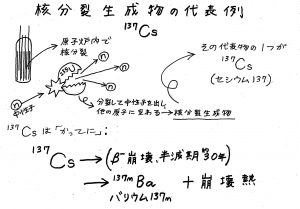 核分裂生成物の代表例
¹³⁷Cs
原子炉内で
核分裂
その代表物の1つが
¹³⁷Cs
(セシウム137)
n
n
n
n
²³⁵U
中性子
分裂して中性子を出し、
他の原子に変わる→核分裂生成物
¹³⁷Csは「かってに」:
¹³⁷Cs→(β⁻崩壊、半減期約30年)
→¹³⁷ᵐBa+崩壊熱
バリウム137m